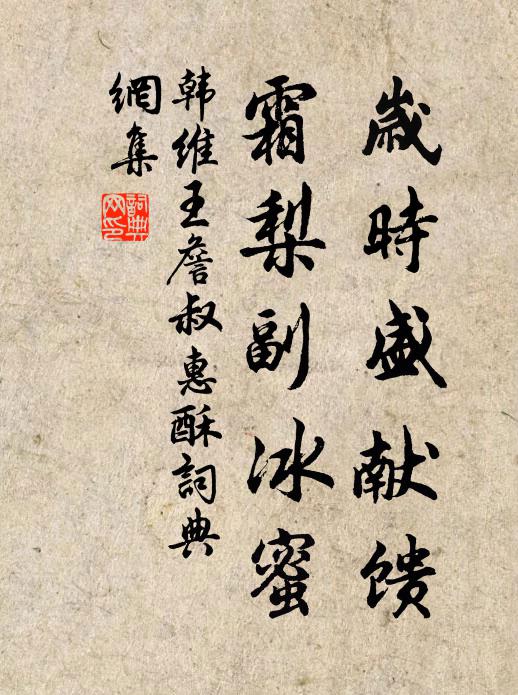 歲時盛献馈
霜梨副冰蜜
韩维王詹叔惠酥詞典
網集
詞典網印